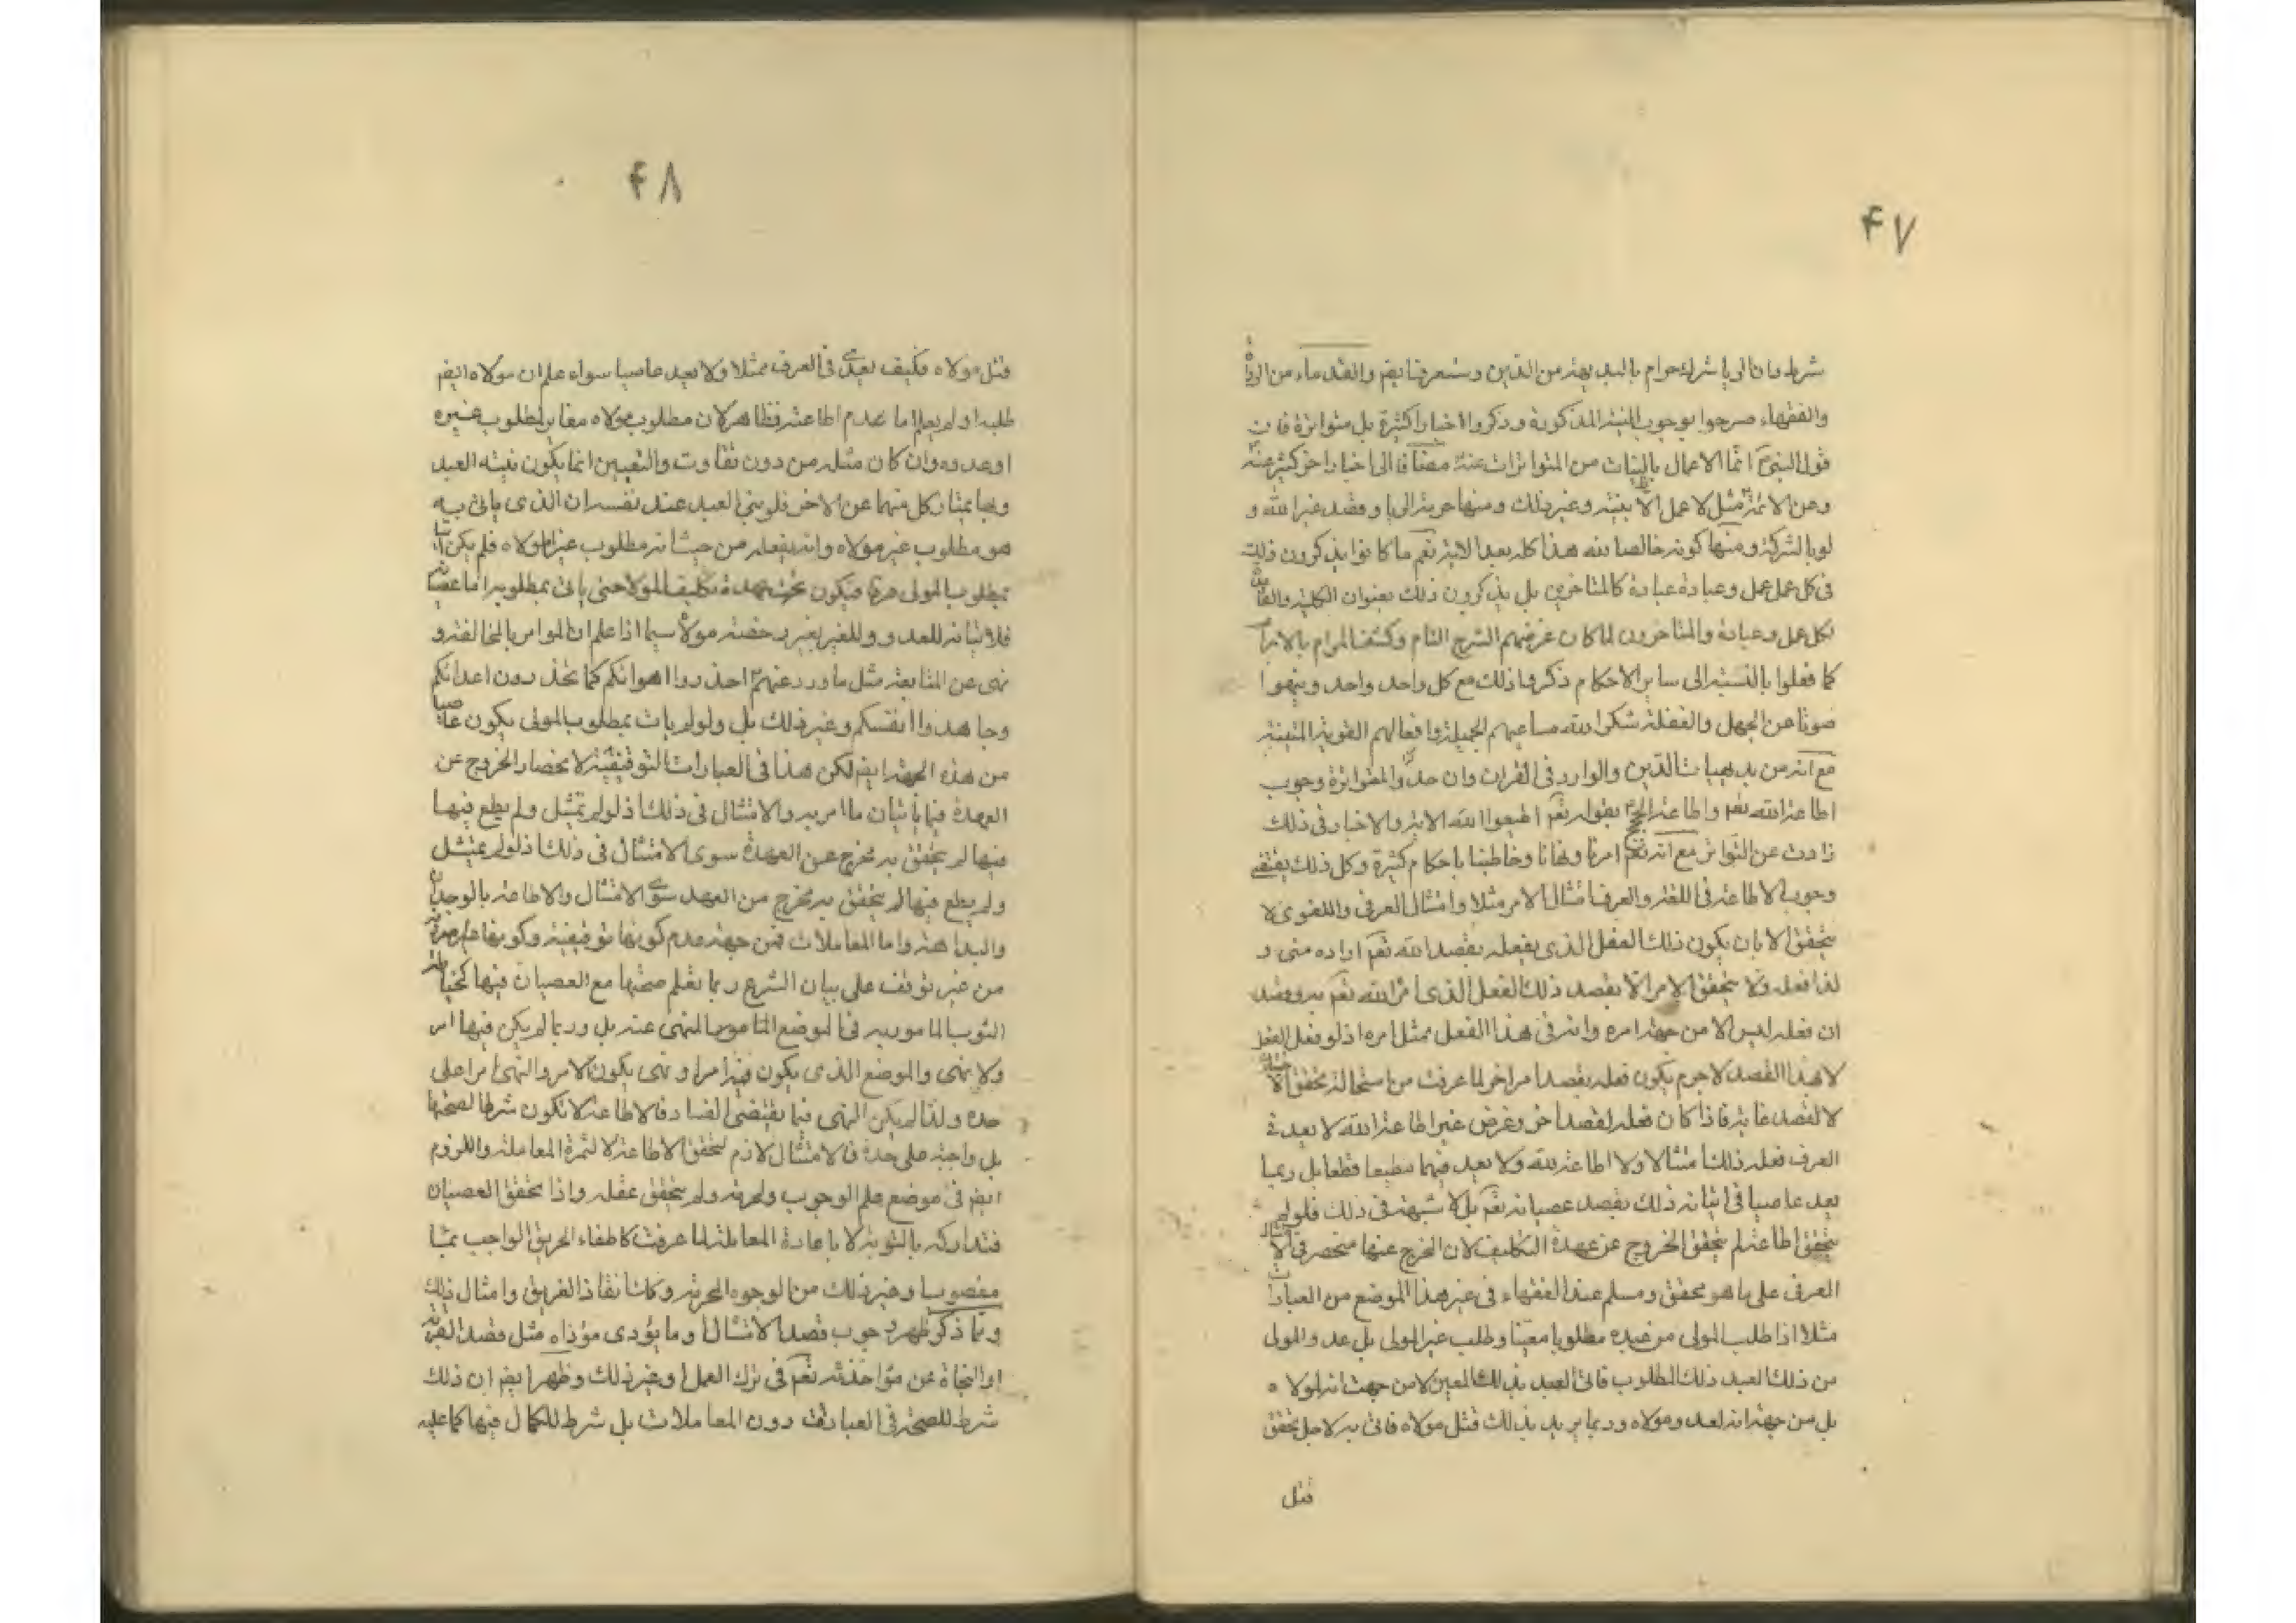 ۴۷
شرط وان الريا شرك حرام بالبديهة من الدين وستعرف ايضا والقدماء من الرواة
والفقهاء صرحوا بوجوب النية المذكورة وذكروا أخبارا كثيرة بل متواترة فان
قول النبي ص انما الاعمال بالنيات من المتواترات عنه مضافا الى اخبار اخر كثيرة عنه
وعن الائمة مثل لا عمل الا بنية وغير ذلك ومنها حرمة الريا وقصد غير الله و
لو بالشركة ومنها كونه خالصا لله هذا كله بعد الاية نعم ما كانوا يذكرون ذلك
فى كل عمل عمل وعبادة عبادة كالمتاخرين بل يذكرون ذلك بعنوان الكلية والقاعدة
لكل عمل وعبادة والمتاخرون لما كان غرضهم الشرح التام وكشف المرام بالابرام
كما فعلوا بالنسبة الى ساير الاحكام ذكروا ذلك مع كل واحد واحد ونبهوا
صونا عن الجهل والغفلة شكر الله مساعيهم الجميلة وافعالهم القوية المتينة
مع انه من بديهيات الدين والوارد فى القران وان حد والمتواترة وجوب
اطاعة الله تعم واطاعة الحجج بقوله تعم اطيعوا الله الاية والاخبار فى ذلك
زادت عن التواتر مع انه تعم امرنا ونهانا وخاطبنا باحكام كثيرة وكل ذلك يقتضى
وجوب الاطاعة فى اللغة والعرف امتثال الامر مثلا وامتثال العرفى واللغوى لا
يتحقق الا بان يكون ذلك الفعل الذى يفعله بقصد الله تعم اراده منى و
لذا فعله ولا يتحقق الامر الا بقصد ذلك الفعل الذى امر الله تعم به وقصد
ان فعله ليس الا من جهة امره وانه فى هذا الفعل ممتثل امره اذ لو فعل الفعل
لا بهذا القصد لا جرم يكون فعله بقصد امر اخر لما عرفت من استحالة تحقق الا
لا لقصد غاية فاذا كان فعله لقصد اخر وغرض غير اطاعة الله لا يعد فى
العرف فعله ذلك امتثالا ولا اطاعة لله ولا يعد فيهما مطيعا قطعا بل ربما
يعد عاصيا فى اتيانه ذلك بقصد عصيانه تعم بل لا شبهة فى ذلك فلو لم
يتحقق اطاعة لم يتحقق الخروج عن عهدة التكليف لان المخرج عنها منحصر فى الامتثال
العرفى على ما هو محقق ومسلم عند الفقهاء فى غير هذا الموضع من العبادات
مثلا اذا طلب المولى من عبده مطلوبا معينا وطلب غير المولى بل عدو المولى
من ذلك العبد ذلك المطلوب فاتى العبد بذلك المعين لا من جهة انه لمولاه
بل من جهة انه لعدو مولاه وربما يريد بذلك قتل مولاه فاتى به لاجل تحقق
قتل
۴۸
قتل مولاه فكيف يعد فى العرف ممتثلا ولا يعد عاصيا سواء علم ان مولاه ايضا
طلبه او لم يعلم اما عدم اطاعته فظاهر لان مطلوب مولاه مغاير لمطلوب غيره
او عدوه وان كان مثله من دون تفاوت والتعيين انما يكون بنية العبد
وبها يمتاز كل منهما عن الاخر فلو بنى العبد عند نفسه ان الذى ياتى به
هو مطلوب غير مولاه وانه يفعله من حيث انه مطلوب غير مولاه فلم يكن اتيا
بمطلوب المولى عرفا فيكون تحت عهدة تكليف المولى حتى ياتى بمطلوبه اما عصيانه
فلاتيانه للعدو وللغير بغير رخصته مولاه سيما اذا علم ان المولى امر بالمخالفة و
نهى عن المتابعة مثل ما ورد عنهم ع احذروا اهوائكم كما تحذرون اعدائكم
وجاهدوا انفسكم وغير ذلك بل ولو لم يات بمطلوب المولى يكون عاصيا
من هذه الجهة ايضا لكن هذا فى العبادات التوقيفية لانحصار الخروج عن
العهدة فيها باتيان ما امر به والامتثال فى ذلك اذ لو لم يمتثل ولم يطع فيها
فيها لم يتحقق به مخرج عن العهدة سوى الامتثال فى ذلك اذ لو لم يمتثل
ولم يطع فيها لم يتحقق به مخرج من العهد سوى الامتثال والاطاعة بالوجدان
والبداهة واما المعاملات فمن جهة عدم كونها توقيفية وكونها
من غير توقف على بيان الشرع ربما تعلم صحتها مع العصيان فيها كخياطة
الثوب المامور به فى الموضع المامور المنهى عنه بل وربما لم يكن فيها امر
ولا نهى والموضع الذى يكون فيه امر او نهى يكون الامر والنهى امرا على
حده ولذا لم يكن النهى فيها يقتضى الفساد فالاطاعة لا تكون شرطا لصحتها
بل واجبة على حدة فالامتثال لازم لتحقق الاطاعة لا لثمرة المعاملة واللزوم
ايضا فى موضع علم الوجوب ولم يتحقق غفله واذا تحقق العصيان
فتداركه بالتوبة لا باعادة المعاملة لما عرفت كاطفاء الحريق الواجب بماء
مغصوب وغير ذلك من الوجوه المحرمة وكانقاذ الغريق وامثال ذلك
ومما ذكر ظهر وجوب قصد الامتثال او ما يؤدى مؤداه مثل قصد القربة
او النجاة عن مؤاخذته تعم فى ترك العمل وغير ذلك وظهر ايضا ان ذلك
شرط للصحة فى العبادات دون المعاملات بل شرط للكمال فيها كما عليه